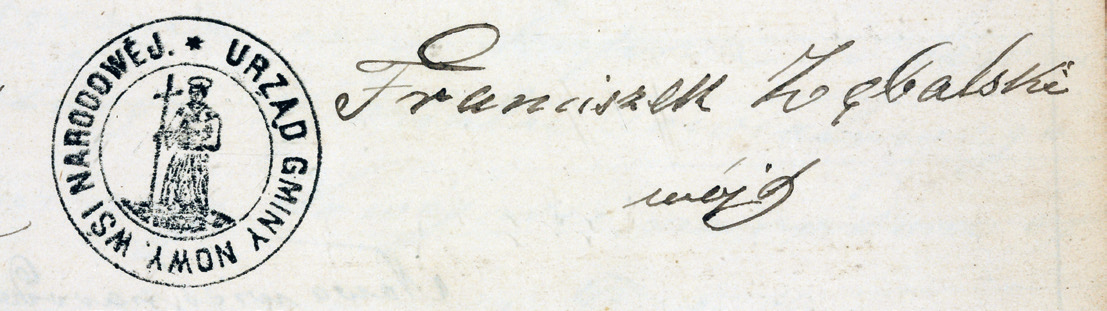 URZĄD GMINY NOWY. WSI NARODOWÉJ. *
Franciszek Zębalski
wójt